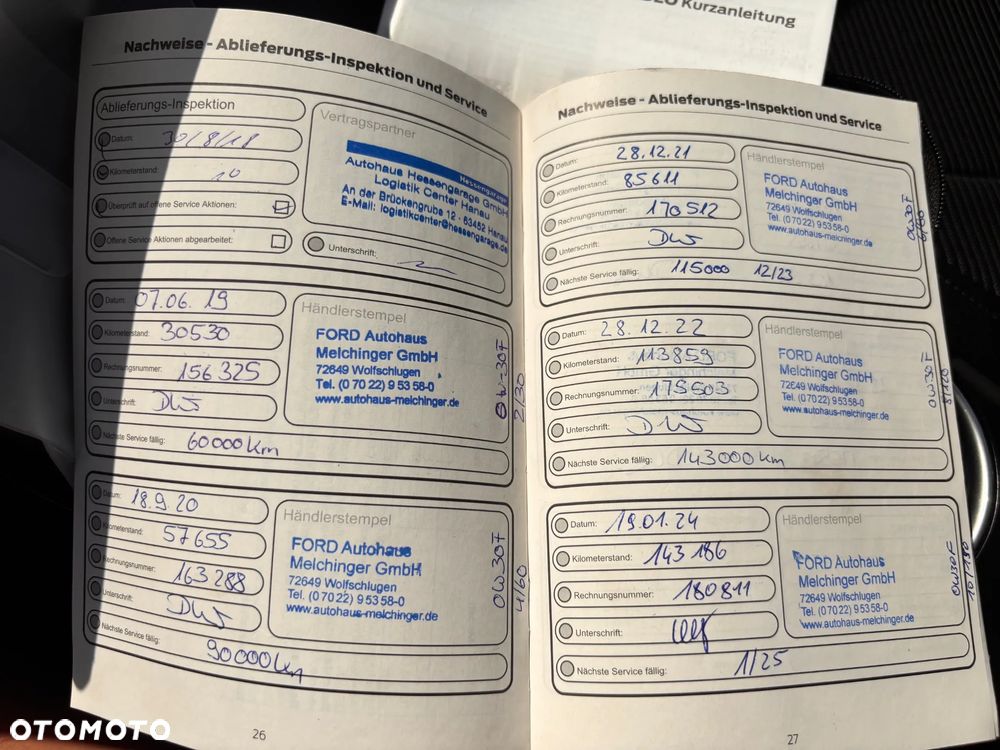 Kurzanleitung
Nachweise - Ablieferungs-Inspektion und Service
Ablieferungs-Inspektion
Datum: 30/8/18
Kilometerstand: 10
Überprüft auf offene Service Aktionen:
Offene Service Aktionen abgearbeitet:
Vertragspartner
Hessengarage
Autohaus Hessengarage GmbH
Logistik Center Hanau
An der Brückengrube 12 - 63452 Hanau
E-Mail: logistikcenter@hessengarage.de
Unterschrift:
Datum: 07.06.19
Kilometerstand: 30530
Rechnungsnummer: 156325
Unterschrift:
Nächste Service fällig: 60000km
Händlerstempel
FORD Autohaus
Melchinger GmbH
72649 Wolfschlugen
Tel. (0 70 22) 9 53 58-0
www.autohaus-melchinger.de
2/30
Datum: 18.9.20
Kilometerstand: 57655
Rechnungsnummer: 163288
Unterschrift:
Nächste Service fällig: 90000km
Händlerstempel
FORD Autohaus
Melchinger GmbH
72649 Wolfschlugen
Tel. (0 70 22) 9 53 58-0
www.autohaus-melchinger.de
0W30F
4/60
26
Nachweise - Ablieferungs-Inspektion und Service
Datum: 28.12.21
Kilometerstand: 85611
Rechnungsnummer: 170512
Unterschrift:
Nächste Service fällig: 115000 12/23
Händlerstempel
FORD Autohaus
Melchinger GmbH
72649 Wolfschlugen
Tel. (0 70 22) 9 53 58-0
www.autohaus-melchinger.de
0W30F
Datum: 28.12.22
Kilometerstand: 113859
Rechnungsnummer: 175503
Unterschrift:
Nächste Service fällig: 143000km
Händlerstempel
FORD Autohaus
Melchinger GmbH
72649 Wolfschlugen
Tel. (0 70 22) 9 53 58-0
www.autohaus-melchinger.de
0W30F
8/120
Datum: 18.01.24
Kilometerstand: 143186
Rechnungsnummer: 180811
Unterschrift:
Nächste Service fällig: 1/25
Händlerstempel
FORD Autohaus
Melchinger GmbH
72649 Wolfschlugen
Tel. (0 70 22) 9 53 58-0
www.autohaus-melchinger.de
0W30F
10/180
27
OTOMOTO